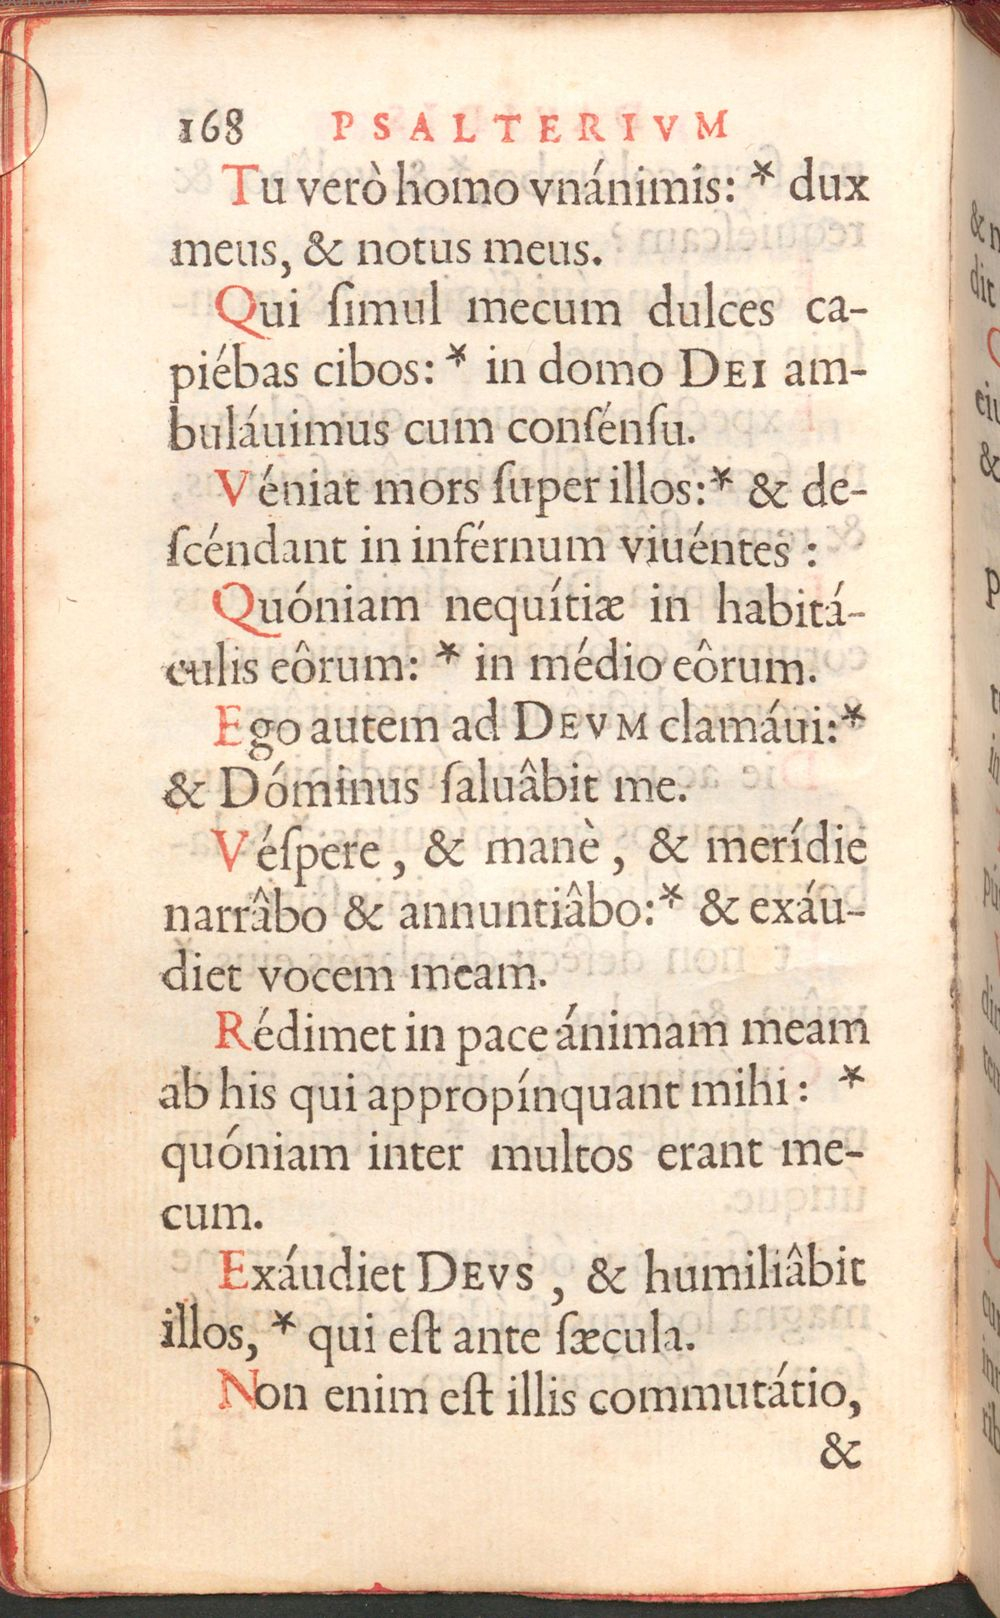 168 PSALTERIVM
Tu verò homo vnánimis: * dux
meus, & notus meus.
Qui ſimul mecum dulces ca-
piébas cibos: * in domo DEI am-
buláuimus cum conſénſu.
Véniat mors ſuper illos: * & de-
ſcéndant in inférnum viuéntes :
Quóniam nequítiæ in habitá-
culis eôrum: * in médio eôrum.
Ego autem ad DEVM clamáui: *
& Dóminus ſaluâbit me.
Véſpere, & manè, & merídie
narrâbo & annuntiâbo: * & exáu-
diet vocem meam.
Rédimet in pace ánimam meam
ab his qui appropínquant mihi: *
quóniam inter multos erant me-
cum.
Exáudiet DEVS, & humiliâbit
illos, * qui eſt ante ſæcula.
Non enim eſt illis commutátio,
&